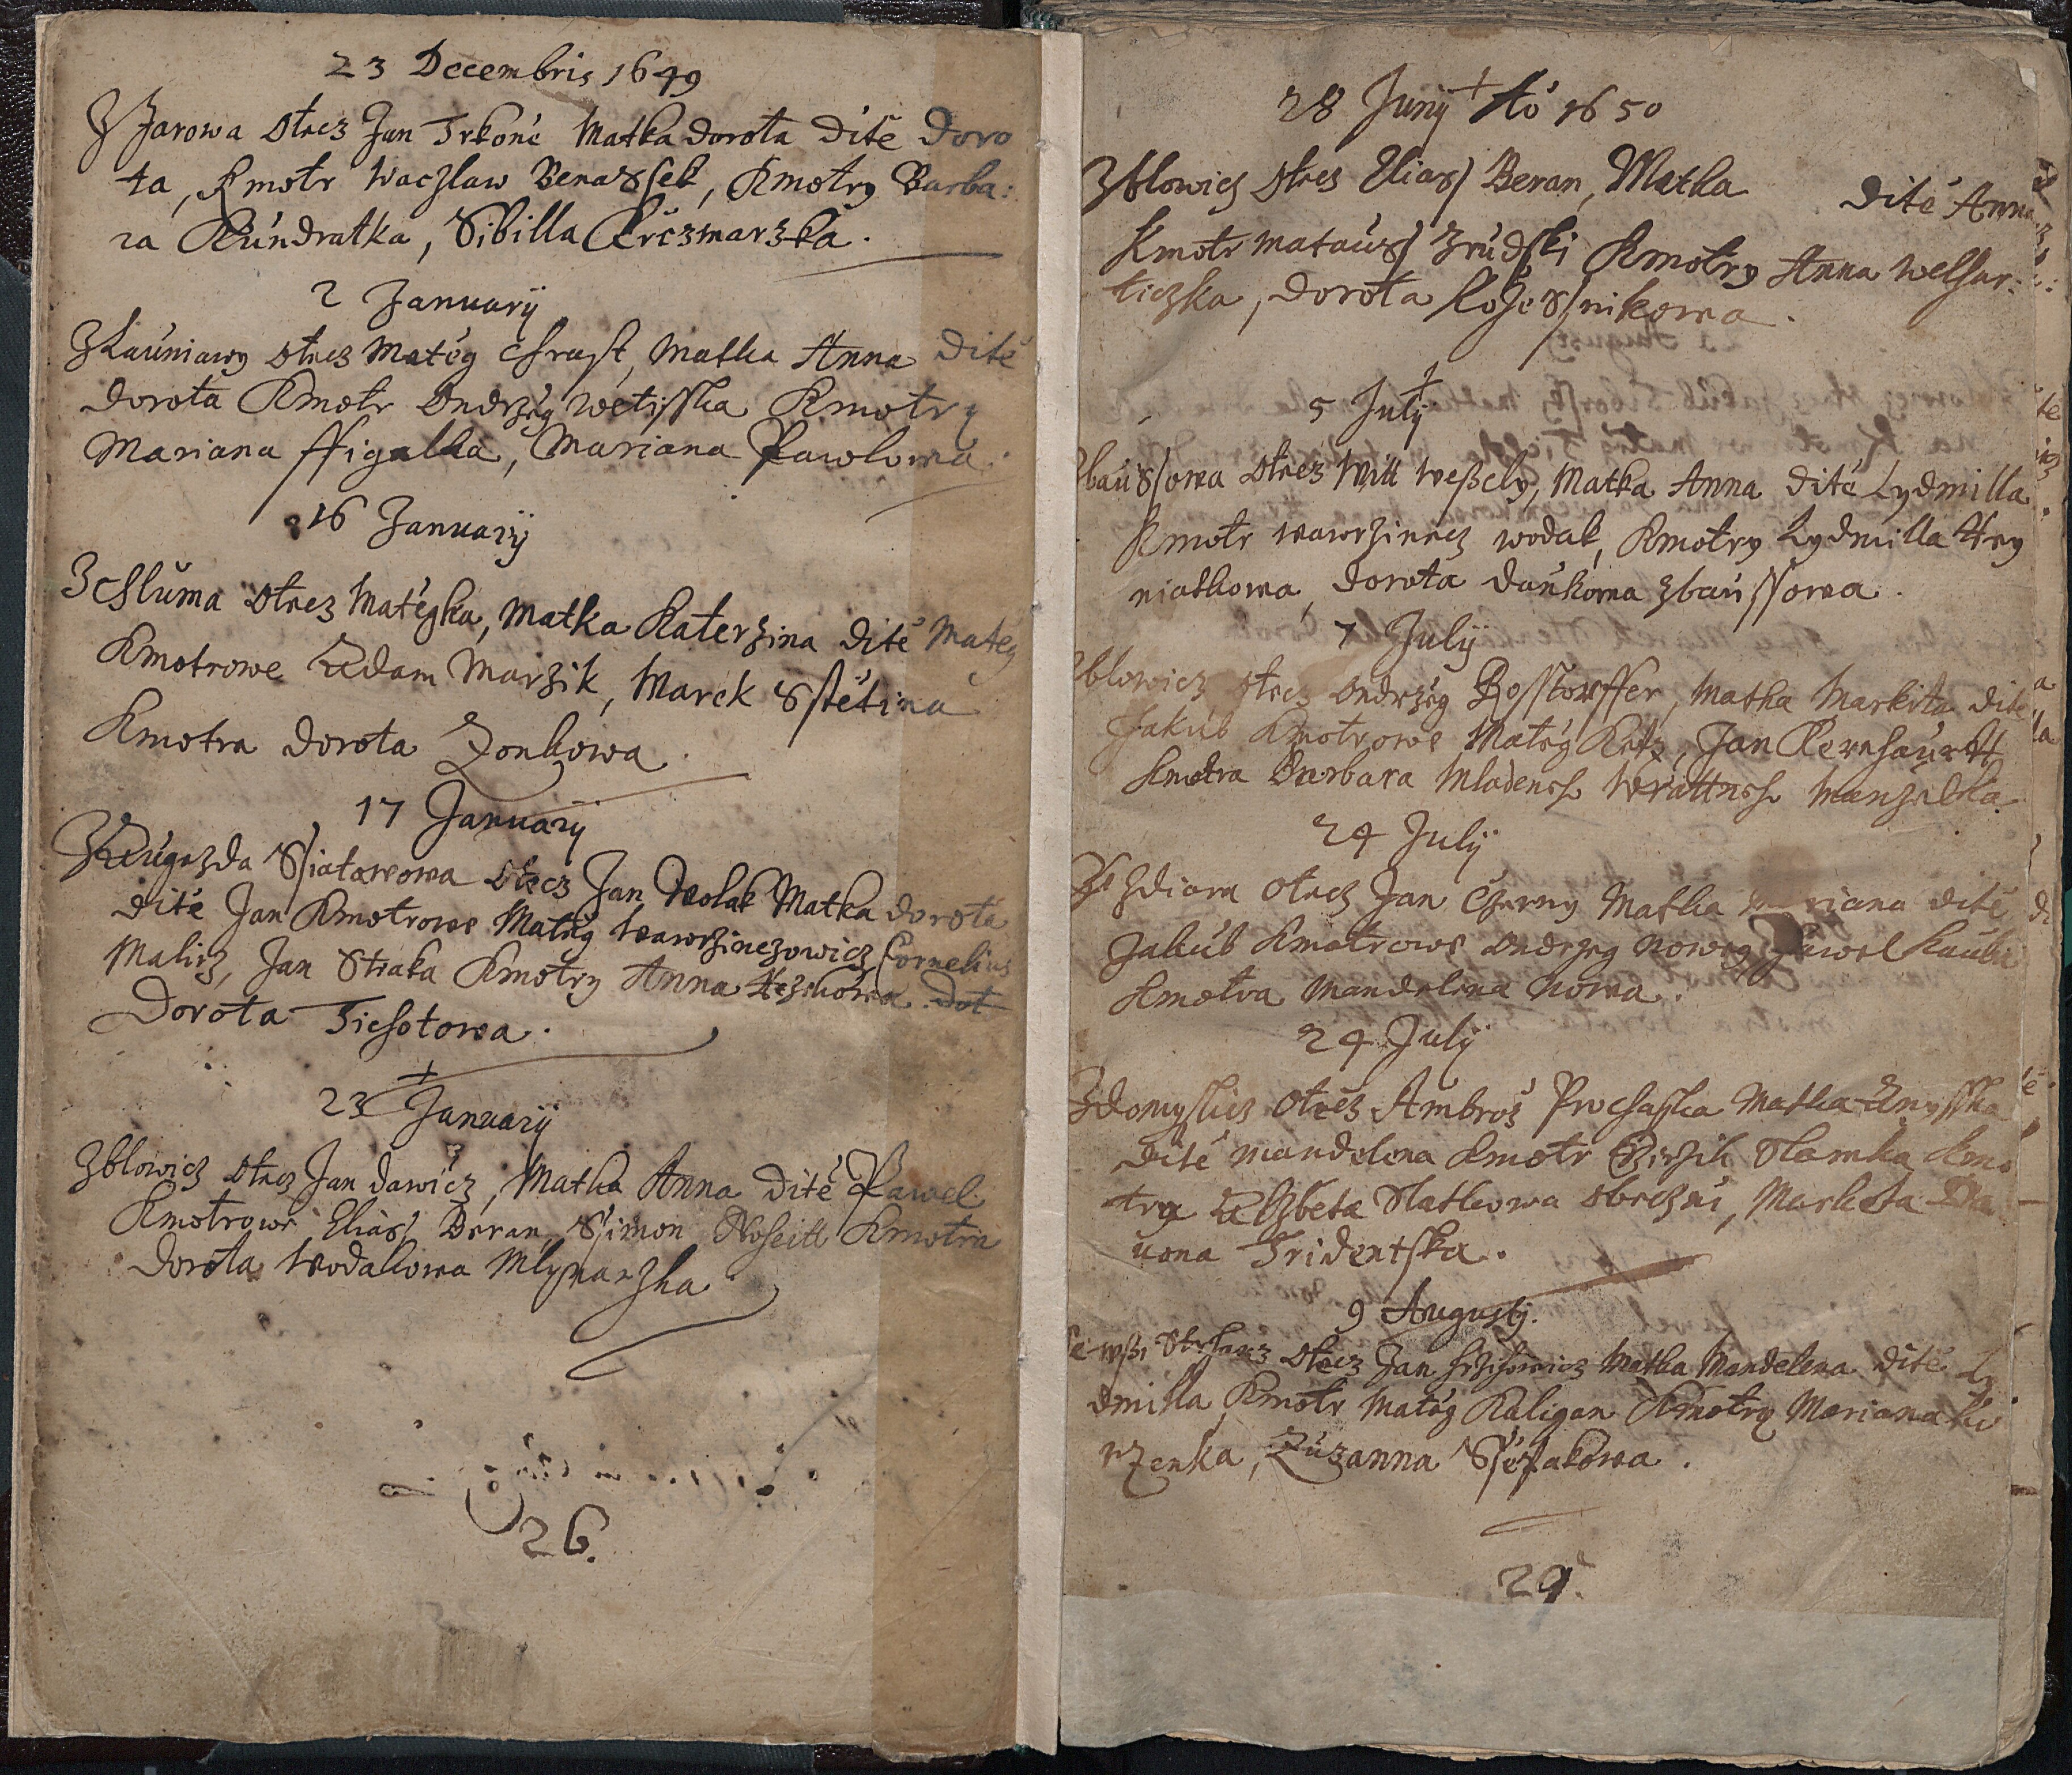 23 Decembris 1649
Z Jarowa Otecz Jan Trkonč Matka Dorota Ditě Doro
ta, Kmotr Waczlaw Benassek, Kmotry Barba:
ra Kúndratka, Sibilla Krčzmarzka.
2 Januarij
Z Launiowy Otecz Matěg Chrast, Matka Anna Ditě
Dorota Kmotr Ondrzeg Wětisska Kmotry
Mariana ffigalka, Mariana Pawlowa.
16 Januarij
Z Chluma Otecz Matěgka, Matka Katerzina Ditě Matěg
Kmotrowe Adam Marzik, Marek Sstětina
Kmotra Dorota Zonkowa.
17 Januarij
Z Augezda Ssiatowowa Otecz Jan Wolak Matka Dorota
Ditě Jan Kmotrowe Matěg Wawrzinczowicz Cornelius
Malirz, Jan Straka Kmotry Anna Dot
Dorota Tichotowa.
23 Januarij
Z blowicz Otecz Jan Dawicz, Matka Anna Ditě Pawel
Kmotrowe Eliass Beran, Ssimon Noheill Kmotra
Dorota Wodakowa Mlynarzka
26.
28 Junij Ao 1650
Z blowicz Otecz Eliass Beran, Matka Ditě Anna
Kmotr Matauss Zrudski Kmotry Anna Welhar:
ticzka, Dorota Kožessnikowa.
5 Julij
Z baussowa Otecz Witt Weßely, Matka Anna Ditě Lydmilla
Kmotr Wawrzinecz Wodak, Kmotry Lydmilla Hry
niatkowa, Dorota Daňkowa z baussowa.
7 Julij
Z blowicz Otecz Ondrzeg Rosstorffer, Matka Markita Ditě
Jakub Kmotrowe Matěg Katz, Jan
Kmotra Barbara Mladench Manželka
24 Julij
Ze Zdiara Otecz Jan Cžerny Matka Mariana Ditě
Jakúb Kmotrowe Ondrzeg Noweg, Pawel Kauba
Kmotra Mandelina Nowa.
24 Julij
Z domyslicz Otecz Ambrož Prochaska Matka Anysska
Ditě Mandelena Kmotr Girzik Slamka Kmo
try Alzbeta Slatkowa Obreznі, Markéta
uona Tridentska.
9 Augustj.
Otecz Jan Matka Mandelena Ditě Ly
dmilla Kmotr Matěg Kaligan Kmotry Mariana
rzenka, Zuzanna Sspakowa.
29.